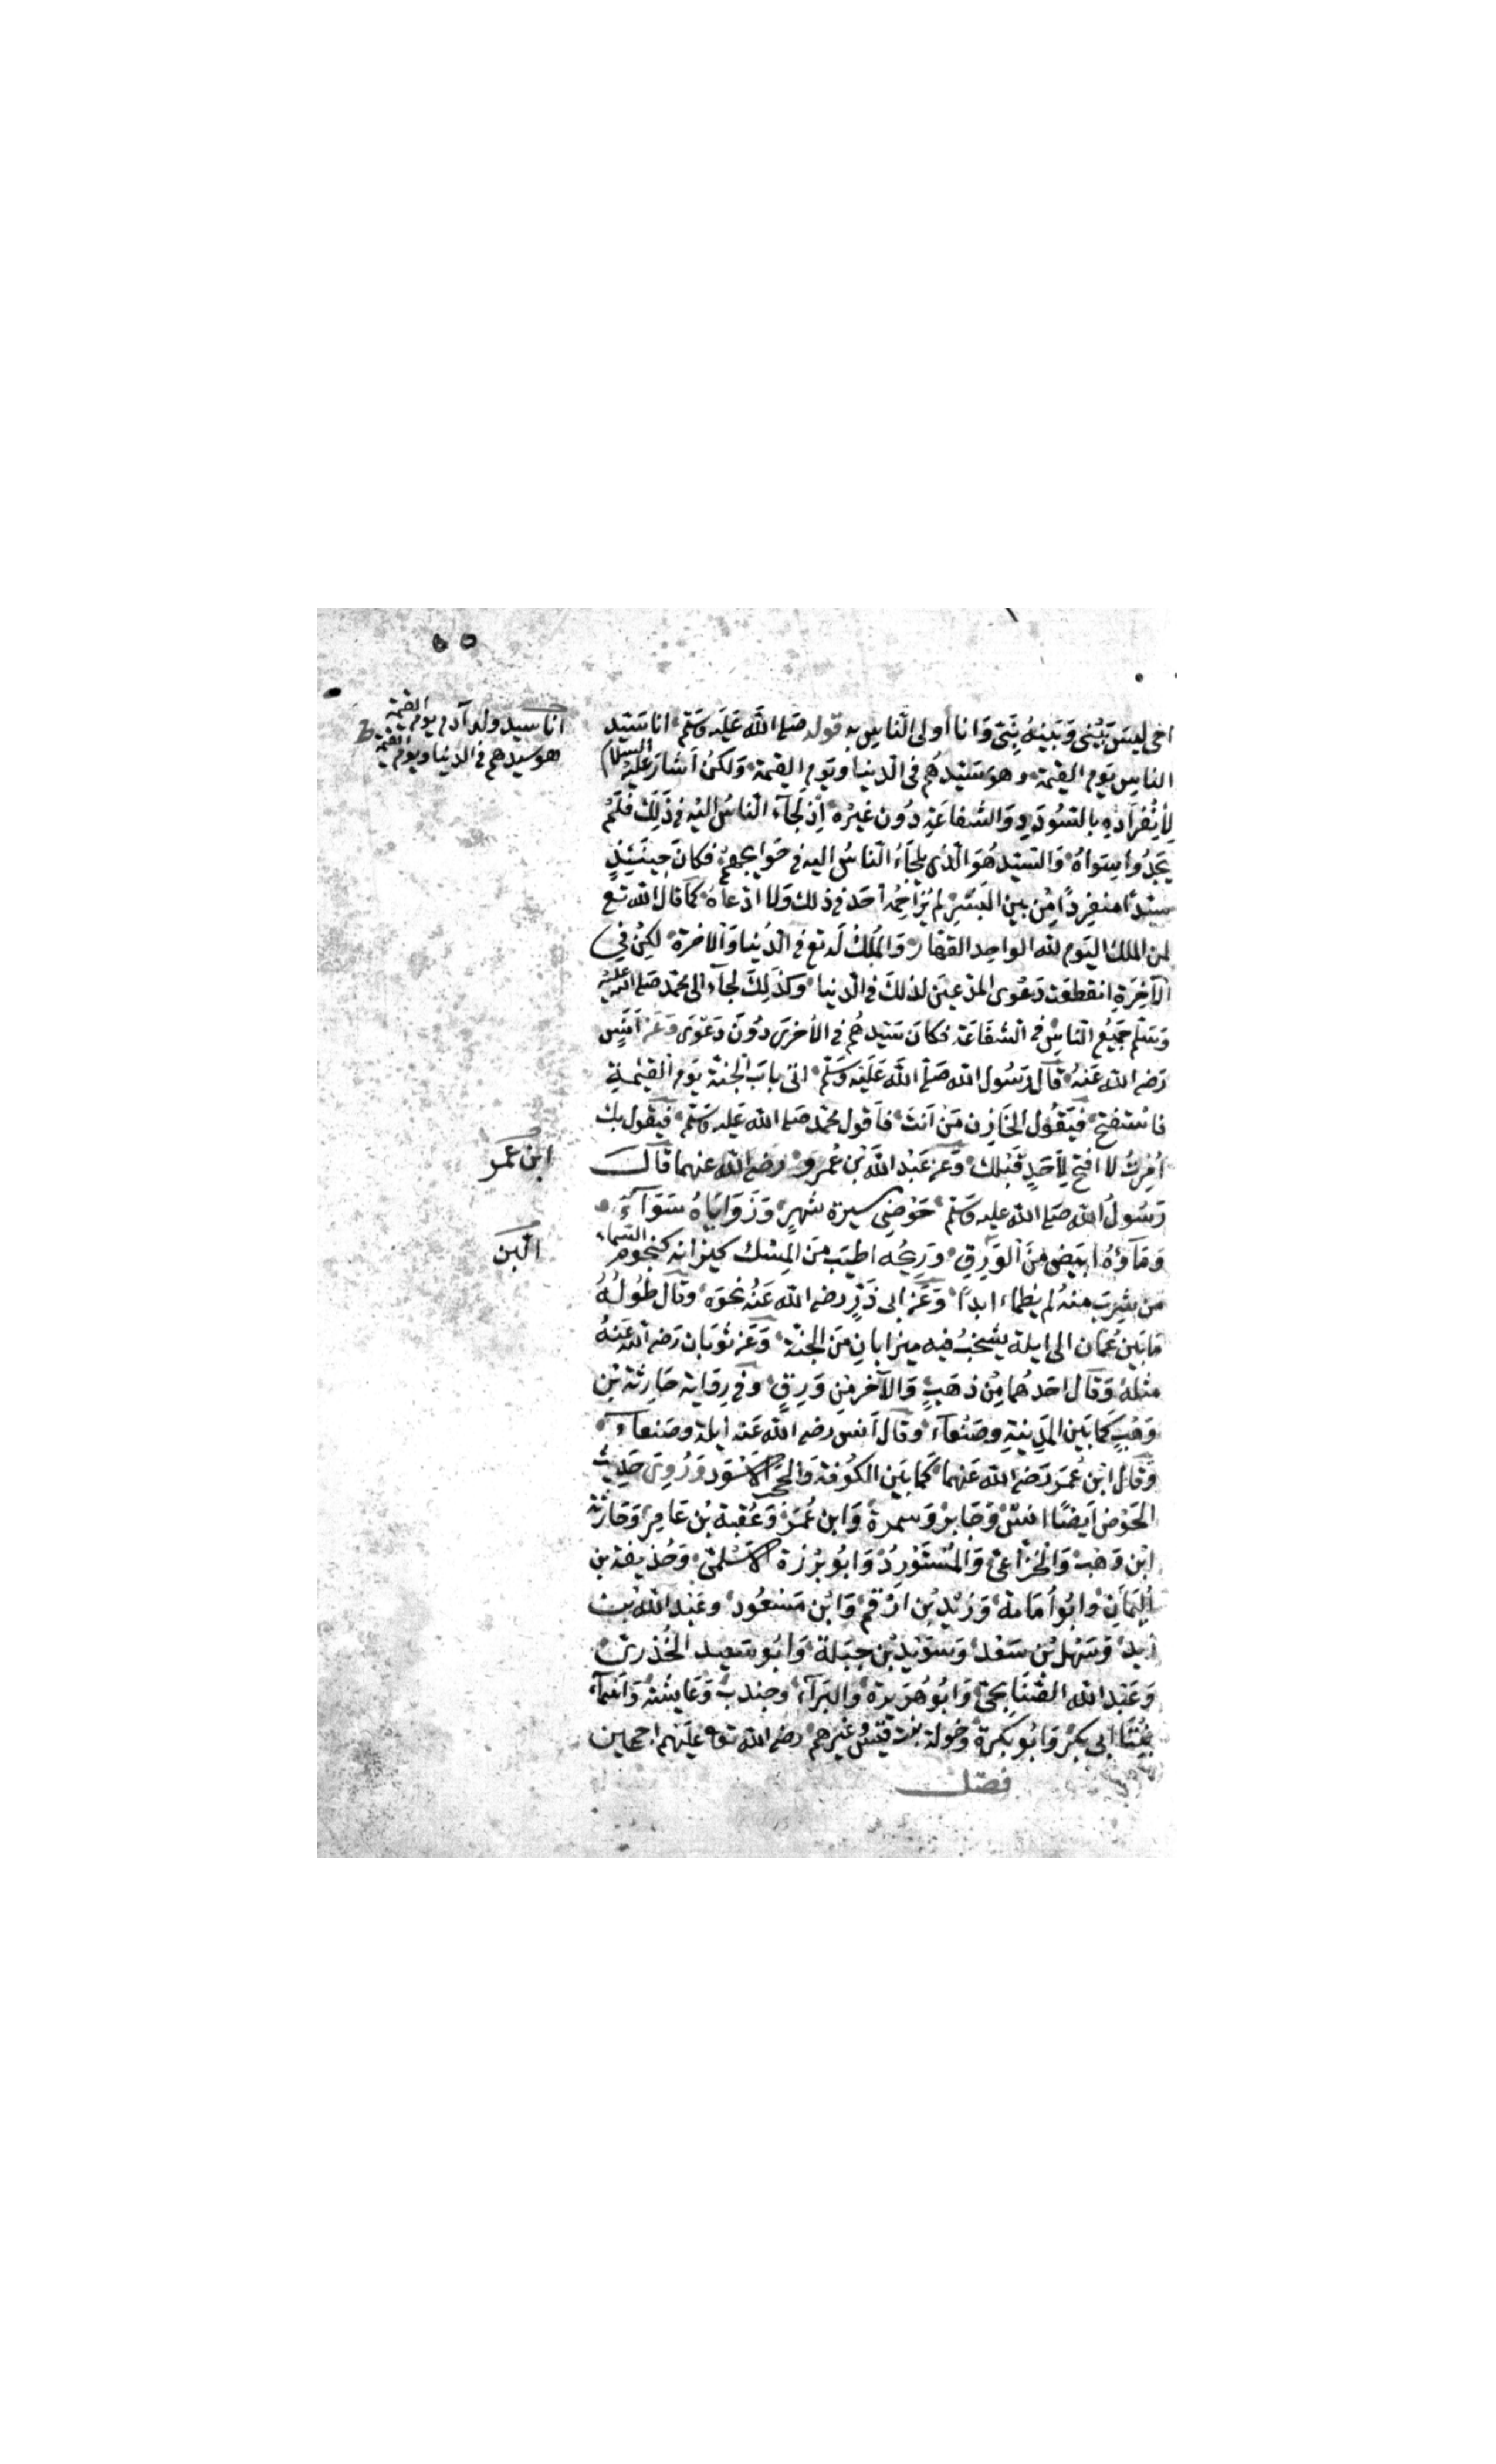 ٥٥
اخى ليسَ بَيْنى وَبَيْنهُ نَبِىّ وَانا أولى النّاسِ به قوله صَلى الله عَليه وَسَلم انا سَيّد
الناسِ يَوم القيمة وهوَ سَيّدهُم فى الدنيا ويَوم القيمة وَلكنْ اَشارَ عليه السلام
لِاِنْفِرَادهِ بِالسُودَدِ وَالشفاعَةِ دُون غيْره اِذ لَجآء الناسُ اليْه فى ذلِكَ فلَمْ
يَجِدُوا سِوَاهُ وَالسَيّد هُوَ الّذى يلجَاءُ النّاسُ اليه فى حَوايجهِمْ فكانَ حِينَئِذٍ
سيّدًا منفرِدًا مِن بين البَشرِ لم يُزَاحِمْهُ اَحَد فى ذلك وَلا ادّعاهُ كما قال الله تع
لمن الملك اليَوم لله الواحِد القهّار وَالمُلكُ لَه تع فى الدُنيا وَالاخرة لكِنْ فى
الآخِرَةِ انقطعَت دَعْوى المدّعينَ لذلكَ فى الدنيا وكذلِكَ لجآء الى محمّد صَلى الله عليه
وَسَلم جَمِيْع النّاسِ فى الشفَاعَة فكانَ سَيّدهُم فى الأخرَى دُونَ دَعْوَى وَعَنْ اَنَسٍ
رَضى الله عَنهُ قالَ رَسُول الله صَلّى الله عَليْه وَسَلم اتى بابَ الجنة يَوم القيمةِ
فاسْتفتح فيَقُول الخَازِن مَنْ اَنتَ فاَقول محمّد صَلى الله عَليه وَسَلم فيَقول بك
اُمِرْتُ لا افتح لِاَحَدٍ قبْلك وَعَن عَبْد الله بْن عُمرو رضى الله عنهما قال
رَسُولُ الله صَلى الله عليه وَسَلم حَوْضِى مسيرة شهرٍ وَزَوَايَاهُ سَوَآءٌ
وَمَآؤهُ ابيَض منَ الوَرِقِ وَرِيحُه اطيَب منَ المِسْك كيزانه كنجوم السمآء
من شرِبَ منهُ لم يظماء ابدًا وَعَن ابى ذَرٍّ رضى الله عَنهُ نحوَه وقال طُولُهُ
مَا بَين عُمَان الى ايلة يشخبُ فيه ميزابانِ منَ الجنّة وَعَن ثوبَان رَضى الله عَنهُ
مثلهُ وَقال احَدهُما مِنْ ذهَبٍ وَالآخر مِن وَرِقٍ وَفى رِوَاية حَارِثة بْن
وَهْبٍ كَما بَين المدِينةِ وصَنْعآءَ وَقال اَنس رضى الله عَنه أيلة وصَنعاء
وَقال ابْن عُمَرَ رَضى الله عَنهما كَما بَين الكُوفة وَالحَجَر الاَسْوَد وَرُوِىَ حَدِيث
الحَوْض اَيضًا انسٌ وَجَابر وَسمرة وَابن عُمَرَ وَعُقبة بْن عَامِر وَحَارثة
ابْن وَهْب وَالخُزاعىّ وَالمُستَوْرِدُ وَابُو بَرْزة الاَسْلمىّ وَحُذيفة بن
اليَمانِ وابُو اُمَامة وَزيْدِ بْن ارْقم وَابْن مَسْعُود وعَبْد الله بن
زيد وَسَهْل بْن سَعْد وَسوَيْدِ بْن جَبَلة وَابُو سَعيد الخُدْرىّ
وَعَبْد الله الصُّنَابحىّ وَابُو هُرَيرة والبَرَآء وجندب وَعَايشة وَاَسْمآء
بِنْتَا ابى بكر وَابُو بكرة وَخولة بنت قيْسٍ وغيْرهم رضى الله تعالى عليهم اجمعين
فصل
انا سيد ولد آدم يوم القيمة
هو سيدهم فى الدنيا ويوم القيمة
ابن عمر
اللبن